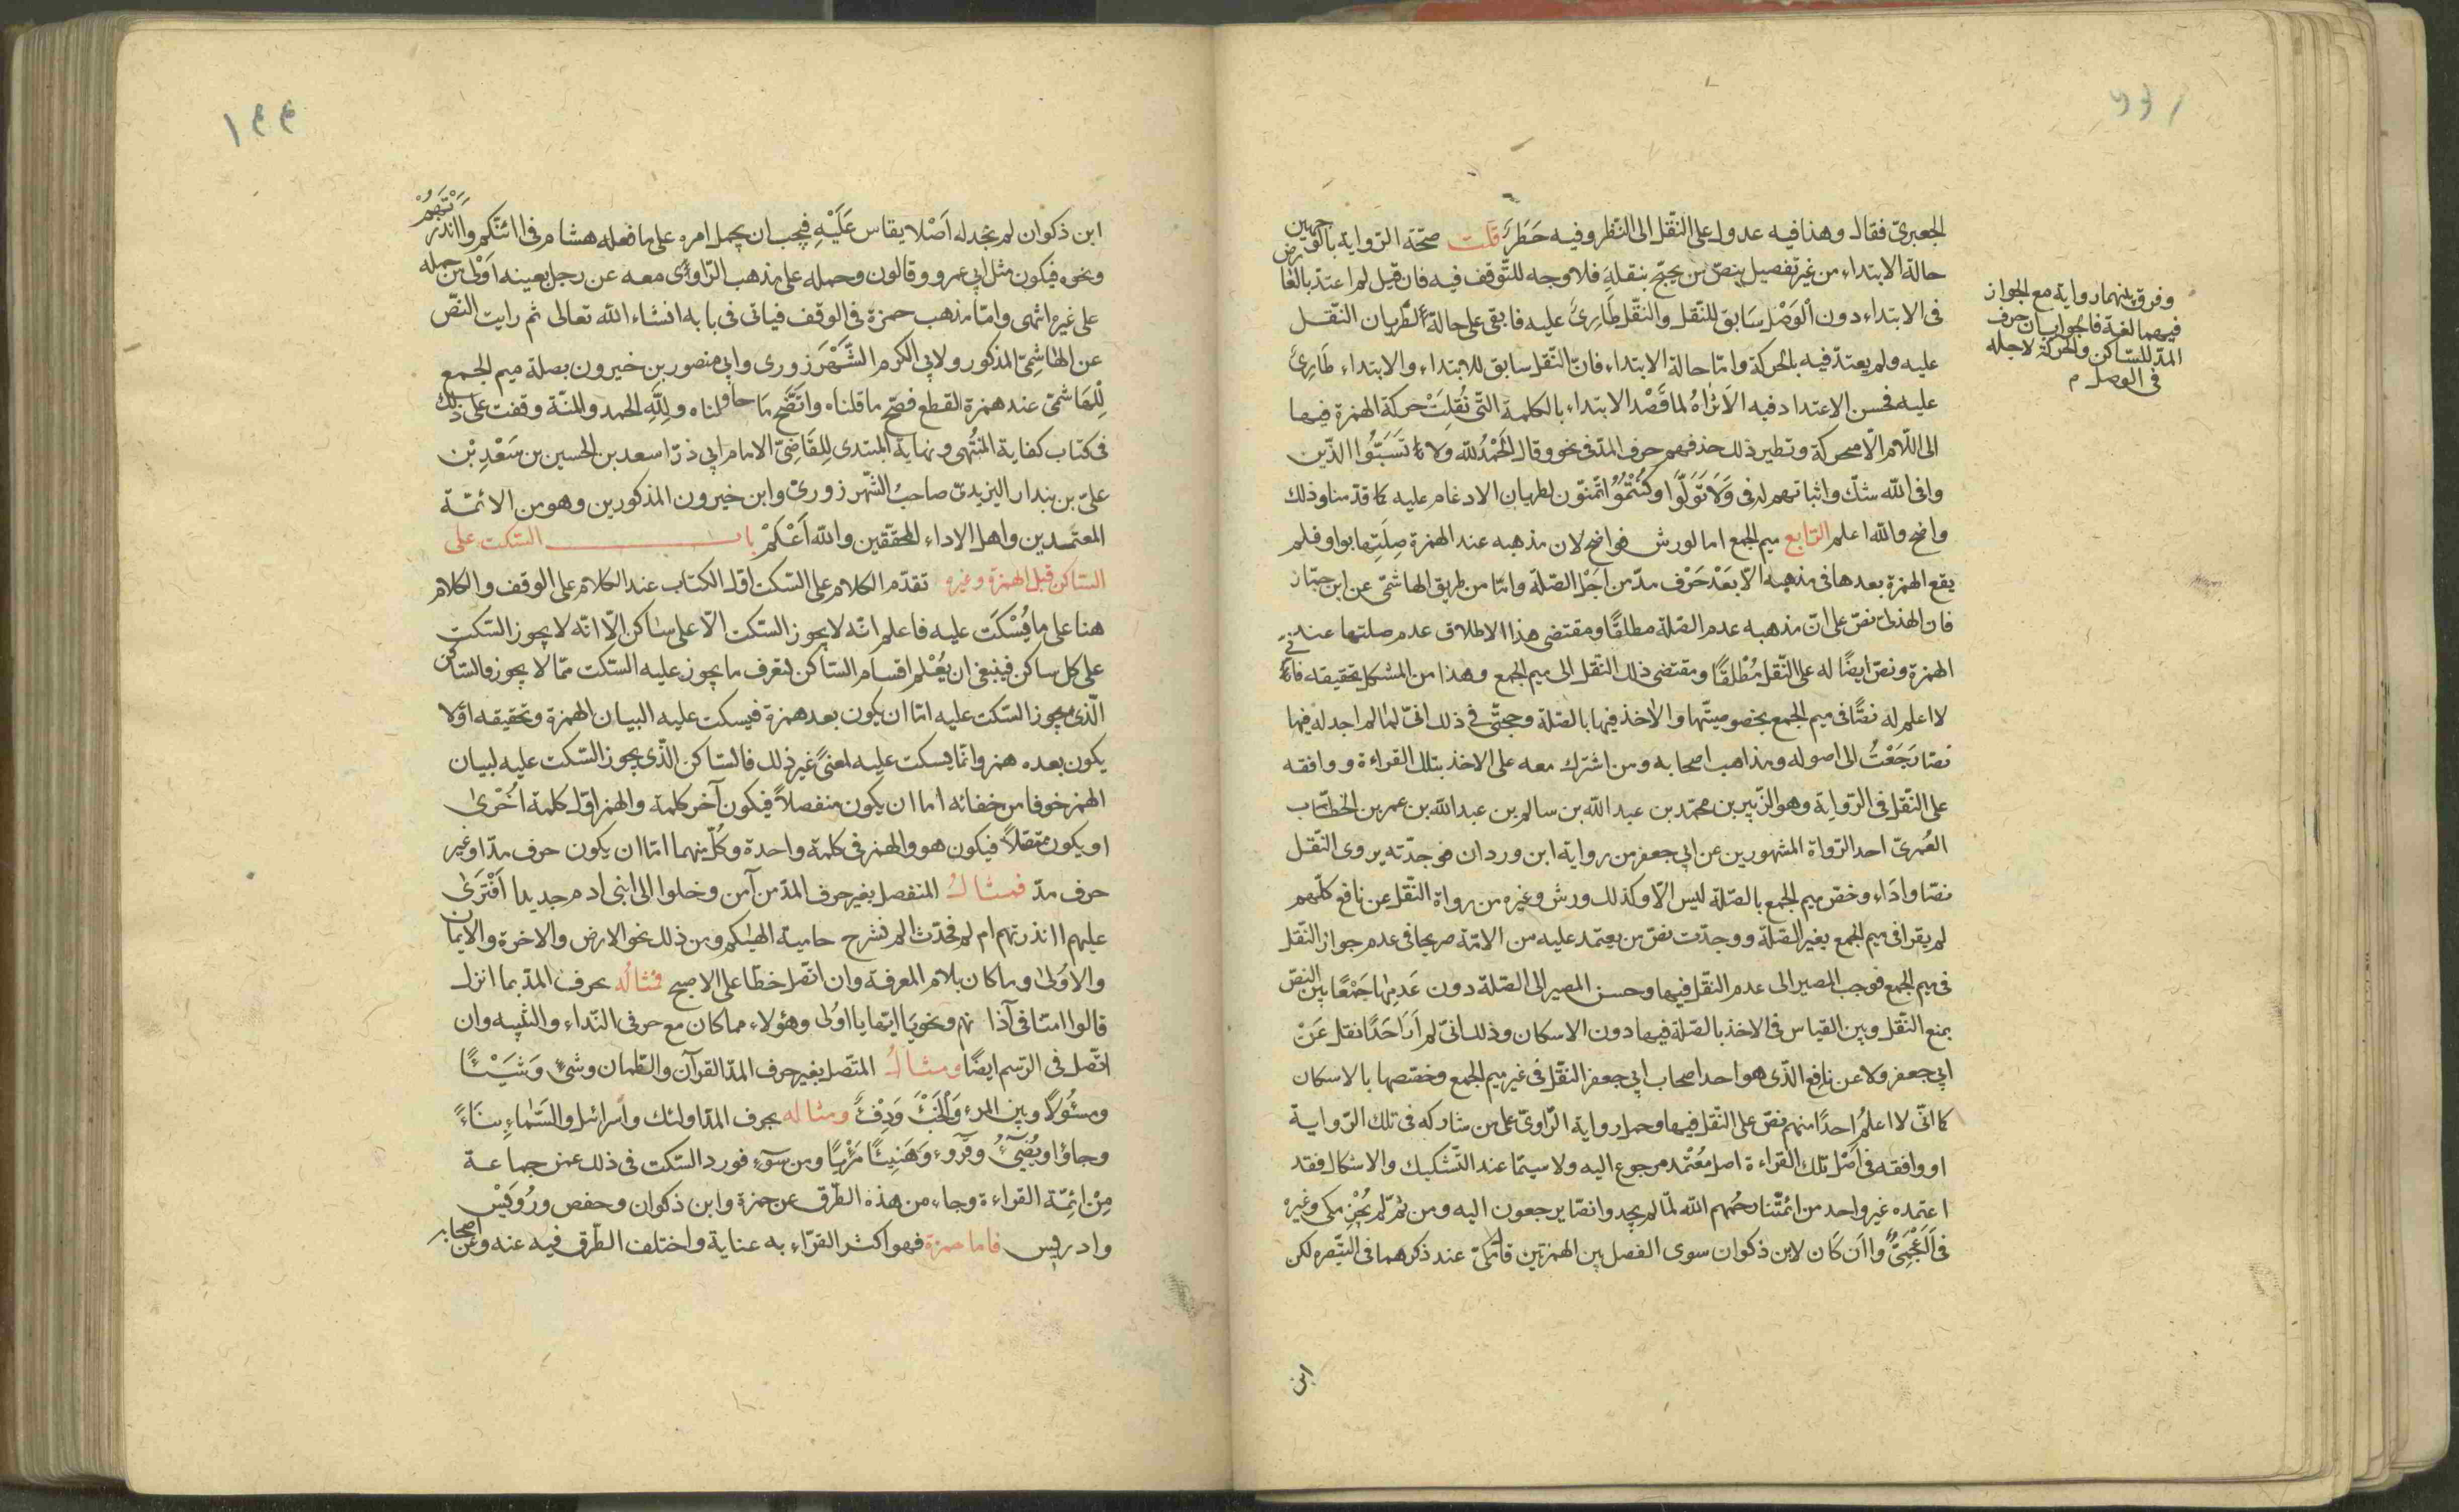 الجعبريّ فقال وهذا فيه عدول على النّقل الى النّظر وفيه حَظَرٌ قلت صحّة الرّواية بالوجهين
حالة الابتداء من غير تفصيل بنصّ من يحتجّ بنقله فلا وجه للتّوقف فيه فان قيل لم اعتدّ بالعارض
فى الابتداء دون الوَصْل
وفرق بينهما رواية مع الجواز
فيهما لغة فالجواب ان حرف
المدّ للسّاكن والحركة لاجله
فى الوصل م
سَابق للنّقل والنّقل طَارِئٌ عليه فابقى على حالة لطريان النّقل
عليه ولم يعتدّ فيه بالحركة وامّا حالة الابتداء فانّ النّقل سابق للابتداء والابتداء طَارِئٌ
عليه فحسن الاعتداد فيه الَا تَرَاهُ لما قَصْد الابتداء بالكلمة التّى نُقِلَتْ حركة الهمزة فيها
الى اللّام الّا محركة ونظير ذلك حذفهم حرف المدّ فى نحو وقالا الحَمْدُ للّه ولا تَسَبُّوا الذّين
وافى اللّه شكّ واثباتهم له فى وَلَا تَوَلَّوْا وكُنْتُمُو اتّمنّون لطريان الادغام عليه كما قدّمنا وذلك
واضح واللّه اعلم الرّابع ميم الجمع اما لورش فواضح لان مذهبه عند الهمزة صِلَتها بواو فلم
يقع الهمزة بعدها فى مذهبه الّا بَعْدَ حَرْف مدّ من اجَل الصّلة وامّا من طريق الهاشمّى عن ابن جمّاز
فان الهذلىّ نصّ على انّ مذهبه عدم الصّلة مطلقًا ومقتضى هذا الاطلاق عدم صلتها عند
الهمزة ونصّ ايضًا له على النّقل مُطْلَقًا ومقتضى ذلك النّقل الى ميم الجمع وهذا من المشكل تحقيقه فانّى
لا اعلم له نصًّا فى ميم الجمع بخصوصيّتها والاخذ فيها بالصّلة وحجتّى فى ذلك انىّ لما لم اجد له فيها
نصّا رَجَعْتُ الى اصوله ومذاهب اصحابه ومن اشترك معه على الاخذ بتلك القراءة ووافقه
على النّقل فى الرّواية وهو الزّبير بن محمّد بن عبد اللّه بن سالم بن عبد اللّه بن عمر بن الخطّاب
العُمرىّ احد الرّواة المشهورين عن ابى جعفر من رواية ابن وردان فوجدّته يروى النّقل
نصّا وادَاء وخصّ ميم الجمع بالصّلة ليس الّا وكذلك ورش وغيره من رواة النّقل عن نافع كلّهم
لم يقرا فى ميم الجمع بغير الصّلة ووجدّت نصّ من يعتمد عليه من الائمّة صريحا فى عدم جواز النّقل
فى ميم الجمع فوجب المصير الى عدم النّقل فيها وحسن المصير الى الصّلة دون عَدمِها جَمْعًا بين النصّ
بمنع النّقل وبين القياس فى الاخذ بالصّلة فيها دون الاسكان وذلك انىّ لم اَرَ اَحَدًا نقل عَنْ
ابى جعفر ولا عن نافع الذّى هو احد اصحاب ابى جعفر النّقل فى غير ميم الجمع وخصّصها بالاسكان
كما انّى لا اعلمُ احدًا منهم نصّ على النّقل فيها وحمل رواية الرّاوىّ على من شاركه فى تلك الرّواية
او وافقه فى اَصْل تلك القراءة اصل مُعْتَمد مرجوع اليه ولا سيمّا عند التّشكيك والاشكال فقد
اعتمده غير واحد من ائمّتنا رحمُهم اللّه لمّا لم يجدوا نصّا يرجعون اليه ومن ثمّ لم يُجْزِ مكى وغيره
فى اَاَعْجَمِىٌّ وااَن كَان لابن ذكوان سوى الفصل بين الهمزتين قال مكىّ عند ذكرهما فى التّبصره لكن
ابن
١٤٤
ابن ذكوان لم نجد له اَصْلا يقاس عَلَيْهِ فيجب ان يحمل امره على ما فعله هشام فى اائنّكم واانذرْتَهُمْ
ونحوه فيكون مثل ابى عمرو وقالون وحمله على مذهب الرّاوى معه عن رجل بعينه اَوْلى من حمله
على غيره انتهى وامّا مذهب حمزة فى الوقف فياتى فى بابه انشاء اللّه تعالى ثم رايت النّصّ
عن الهاشمىّ المذكور ولابى الكرم الشّهْرَزورى وابى منصور بن خيرون بصلة ميم الجمع
لِلهَاشمىّ عند همزة القطع فصحّ ما قلناه واتّضَح مَا حاولناه ولِلّه الحمد والمنّة وقفت على ذلك
فى كتاب كفاية المُنتْهى ونهاية المبتدى لِلقَاضِىّ الامام ابى ذرّ اسعد بن الحسين بن سَعْدِ بْن
علىّ بن بندار اليزيدىّ صاحبُ الشّهر زورىّ وابن خيرون المذكورين وهو من الائمّة
المعتمدين واهل الاداء المحققين واللّه اَعْلَمُ باب السّكت على
السّاكن قبل الهمزة وغيره تقدّم الكلام على السّكت اوّل الكتاب عند الكلام على الوقف والكلام
هنا على ما يُسْكَت عليه فاعلم انّه لا يجوز السّكت الّا على ساكن الّا انّه لا يجوز السّكت
على كل ساكن فينبغى ان يُعْلم اقسام السّاكن لتعرف ما يجوز عليه السّكت ممّا لا يجوز فالسّاكن
الّذى يجوز السّكت عليه امّا ان يكون بعد همزة فيسكت عليه البيان الهمزة وتحقيقه اوّلا
يكون بعده همز وانّما يسكت عليه لمعنىً غير ذلك فالسّاكن الذّى يجوز السّكت عليه لبيان
الهمز خوفا من خفائه اما ان يكون منفصلاً فيكون آخر كلمة والهمز اوّل كلمة اُخْرىٰ
او يكون متّصلاً فيكون هو والهمز فى كلمة واحدة وكُلّ منهما امّا ان يكون حرف مدّ او غير
حرف مدّ فمثالُ المنفصل بغير حرف المدّ من آمن وخلوا الى ابنى ادم جديد اَفْتَرىٰ
عليهم اانذرتهم ام لم فحَدّث الم نشرح حامية الهيٰكم ومن ذلك نحو الارض والاخرة والايمان
والاُولىٰ وما كان بلام المعرفة وان اتّصل خطّا على الاصحّ فمثالُه بحرف المدّ بما انزل
قالوا امنّا فى آذانهم ونحو يَا ايّها يا اُولى وهؤلاء مما كان مع حرفى النّداء والتّنبيه وان
اتّصل فى الرّسم ايضًا ومثالُ المتّصل بغير حرف المدّ القرآن والظّمان وشئٍ وَشَيْئًا
ومسئُولاً وبين المرءِ وَالْخَبْءَ وَدِفْءٌ ومثاله بحرف المدّ اولئك واسرائل والسَّمٰاءِ بنَاءً
وجاؤا ويُضِىٓءُ وقُرُوٓءٍ وَهَنِيئًا مَرِيًا ومن سوٓءٍ فورد السّكت فى ذلك عن جماعة
مِنْ ائمّة القراءة وجاء من هذه الطّرق عن حمزة وابن ذكوان وحفص ورُوَيْس
وادريس فاما حمزة فهو اكثر القرّاء به عناية واختلف الطّرق فيه عنه وعن اصحابه